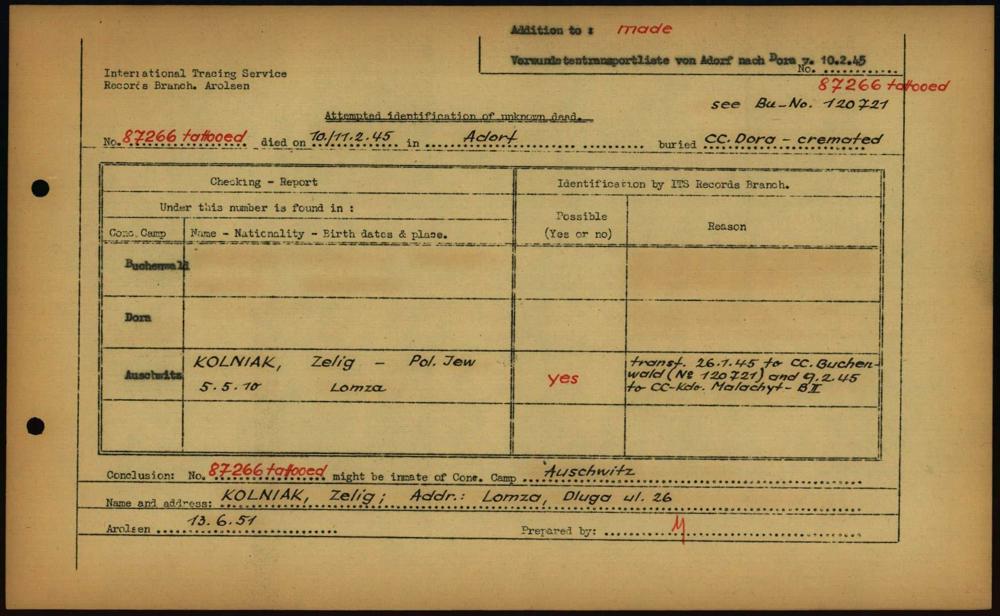 Addition to : made
Verwundetentransportliste von Adorf nach Dora v. 10.2.45
No. ............
International Tracing Service
Records Branch. Arolsen
87266 tattooed
see Bu-No. 120721
Attempted identification of unknown dead.
No. 87266 tattooed died on 10./11.2.45 in Adorf buried CC. Dora - cremated
Checking - Report
Identification by ITS Records Branch.
Under this number is found in :
Possible
(Yes or no)
Reason
Conc. Camp
Name - Nationality - Birth dates & place.
Buchenwald
Dora
Auschwitz
KOLNIAK, Zelig - Pol. Jew
5.5.10 Lomza
yes
transf. 26.1.45 to CC. Buchen-
wald (No 120721) and 9.2.45
to CC-Kdo. Malachyt - BII
Conclusion: No. 87266 tattooed might be inmate of Conc. Camp Auschwitz
Name and address: KOLNIAK, Zelig; Addr.: Lomza, Dluga ul. 26
Arolsen 13.6.51
Prepared by: